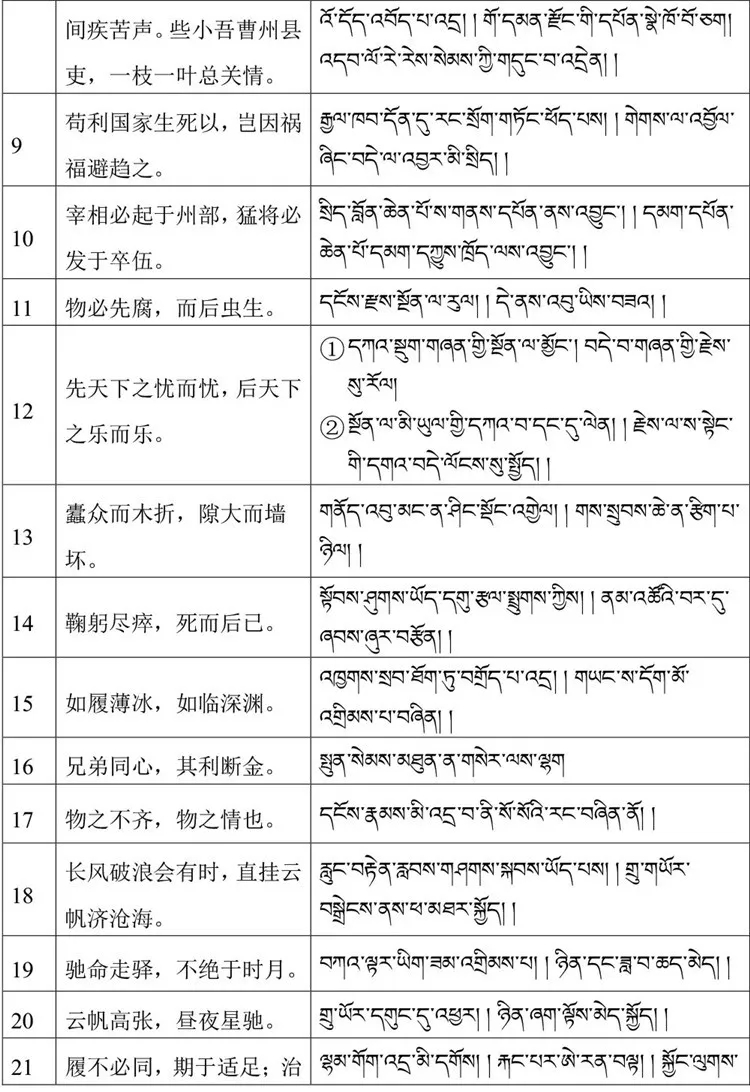 间疾苦声。些小吾曹州县
吏，一枝一叶总关情。
འོ་དོད་འབོད་པ་འདྲ། །གོ་དམན་རྫོང་གི་དཔོན་སྣེ་ཁོ་བོ་ཅག།
འདབ་ལོ་རེ་རེས་སེམས་ཀྱི་གདུང་བ་འདྲེན། །
9
苟利国家生死以，岂因祸
福避趋之。
རྒྱལ་ཁབ་དོན་དུ་རང་སྲོག་གཏོང་ཕོད་པས། །གེགས་ལ་འབྱོལ་
ཞིང་བདེ་ལ་འབྱར་མི་སྲིད། །
10
宰相必起于州部，猛将必
发于卒伍。
སྲིད་བློན་ཆེན་པོ་ས་གནས་དཔོན་ནས་འབྱུང་། །དམག་དཔོན་
ཆེན་པོ་དམག་དཀྱུས་ཁྲོད་ལས་འབྱུང་། །
11
物必先腐，而后虫生。
དངོས་རྫས་སྔོན་ལ་རུལ། །དེ་ནས་འབུ་ཡིས་བཟའ། །
12
先天下之忧而忧，后天下
之乐而乐。
① དཀའ་སྡུག་གཞན་གྱི་སྔོན་ལ་མྱོང་། བདེ་བ་གཞན་གྱི་རྗེས་
སུ་རོལ།
② སྔོན་ལ་མི་ཡུལ་གྱི་དཀའ་བ་དང་དུ་ལེན། །རྗེས་ལ་ས་སྟེང་
གི་དགའ་བདེ་ལོངས་སུ་སྤྱོད། །
13
蠹众而木折，隙大而墙
坏。
གནོད་འབུ་མང་ན་ཤིང་སྡོང་འགྱེལ། །གས་སྲུབས་ཆེ་ན་རྩིག་པ་
ཉིལ། །
14
鞠躬尽瘁，死而后已。
སྟོབས་ཤུགས་ཡོད་དགུ་རྩལ་སྤྲུགས་ཀྱིས། །ནམ་འཚོའི་བར་དུ་
ཞབས་ཞུར་བརྩོན། །
15
如履薄冰，如临深渊。
འཁྱགས་སྲབ་ཐོག་ཏུ་བགྲོད་པ་འདྲ། །གཡང་ས་དོག་མོ་
འགྲིམས་པ་བཞིན། །
16
兄弟同心，其利断金。
སྤུན་སེམས་མཐུན་ན་གསེར་ལས་ལྷག
17
物之不齐，物之情也。
དངོས་རྣམས་མི་འདྲ་བ་ནི་སོ་སོའི་རང་བཞིན་ནོ། །
18
长风破浪会有时，直挂云
帆济沧海。
རླུང་བརྟེན་རླབས་གཤགས་སྐབས་ཡོད་པས། །གྲུ་གཡོར་
བསྒྲེངས་ནས་ཕ་མཐར་སྐྱོད། །
19
驰命走驿，不绝于时月。
བཀའ་ལྟར་ཡིག་ཟམ་འགྲིམས་པ། །ཉིན་དང་ཟླ་བ་ཆད་མེད། །
20
云帆高张，昼夜星驰。
གྲུ་ཡོར་དགུང་དུ་འཕྱར། །ཉིན་ཞག་ལྟོས་མེད་སྐྱོད། །
21
履不必同，期于适足；治
ལྷམ་གོག་འདྲ་མི་དགོས། །རྐང་པར་ཨེ་རན་བལྟ། །སྐྱོང་ལུགས་